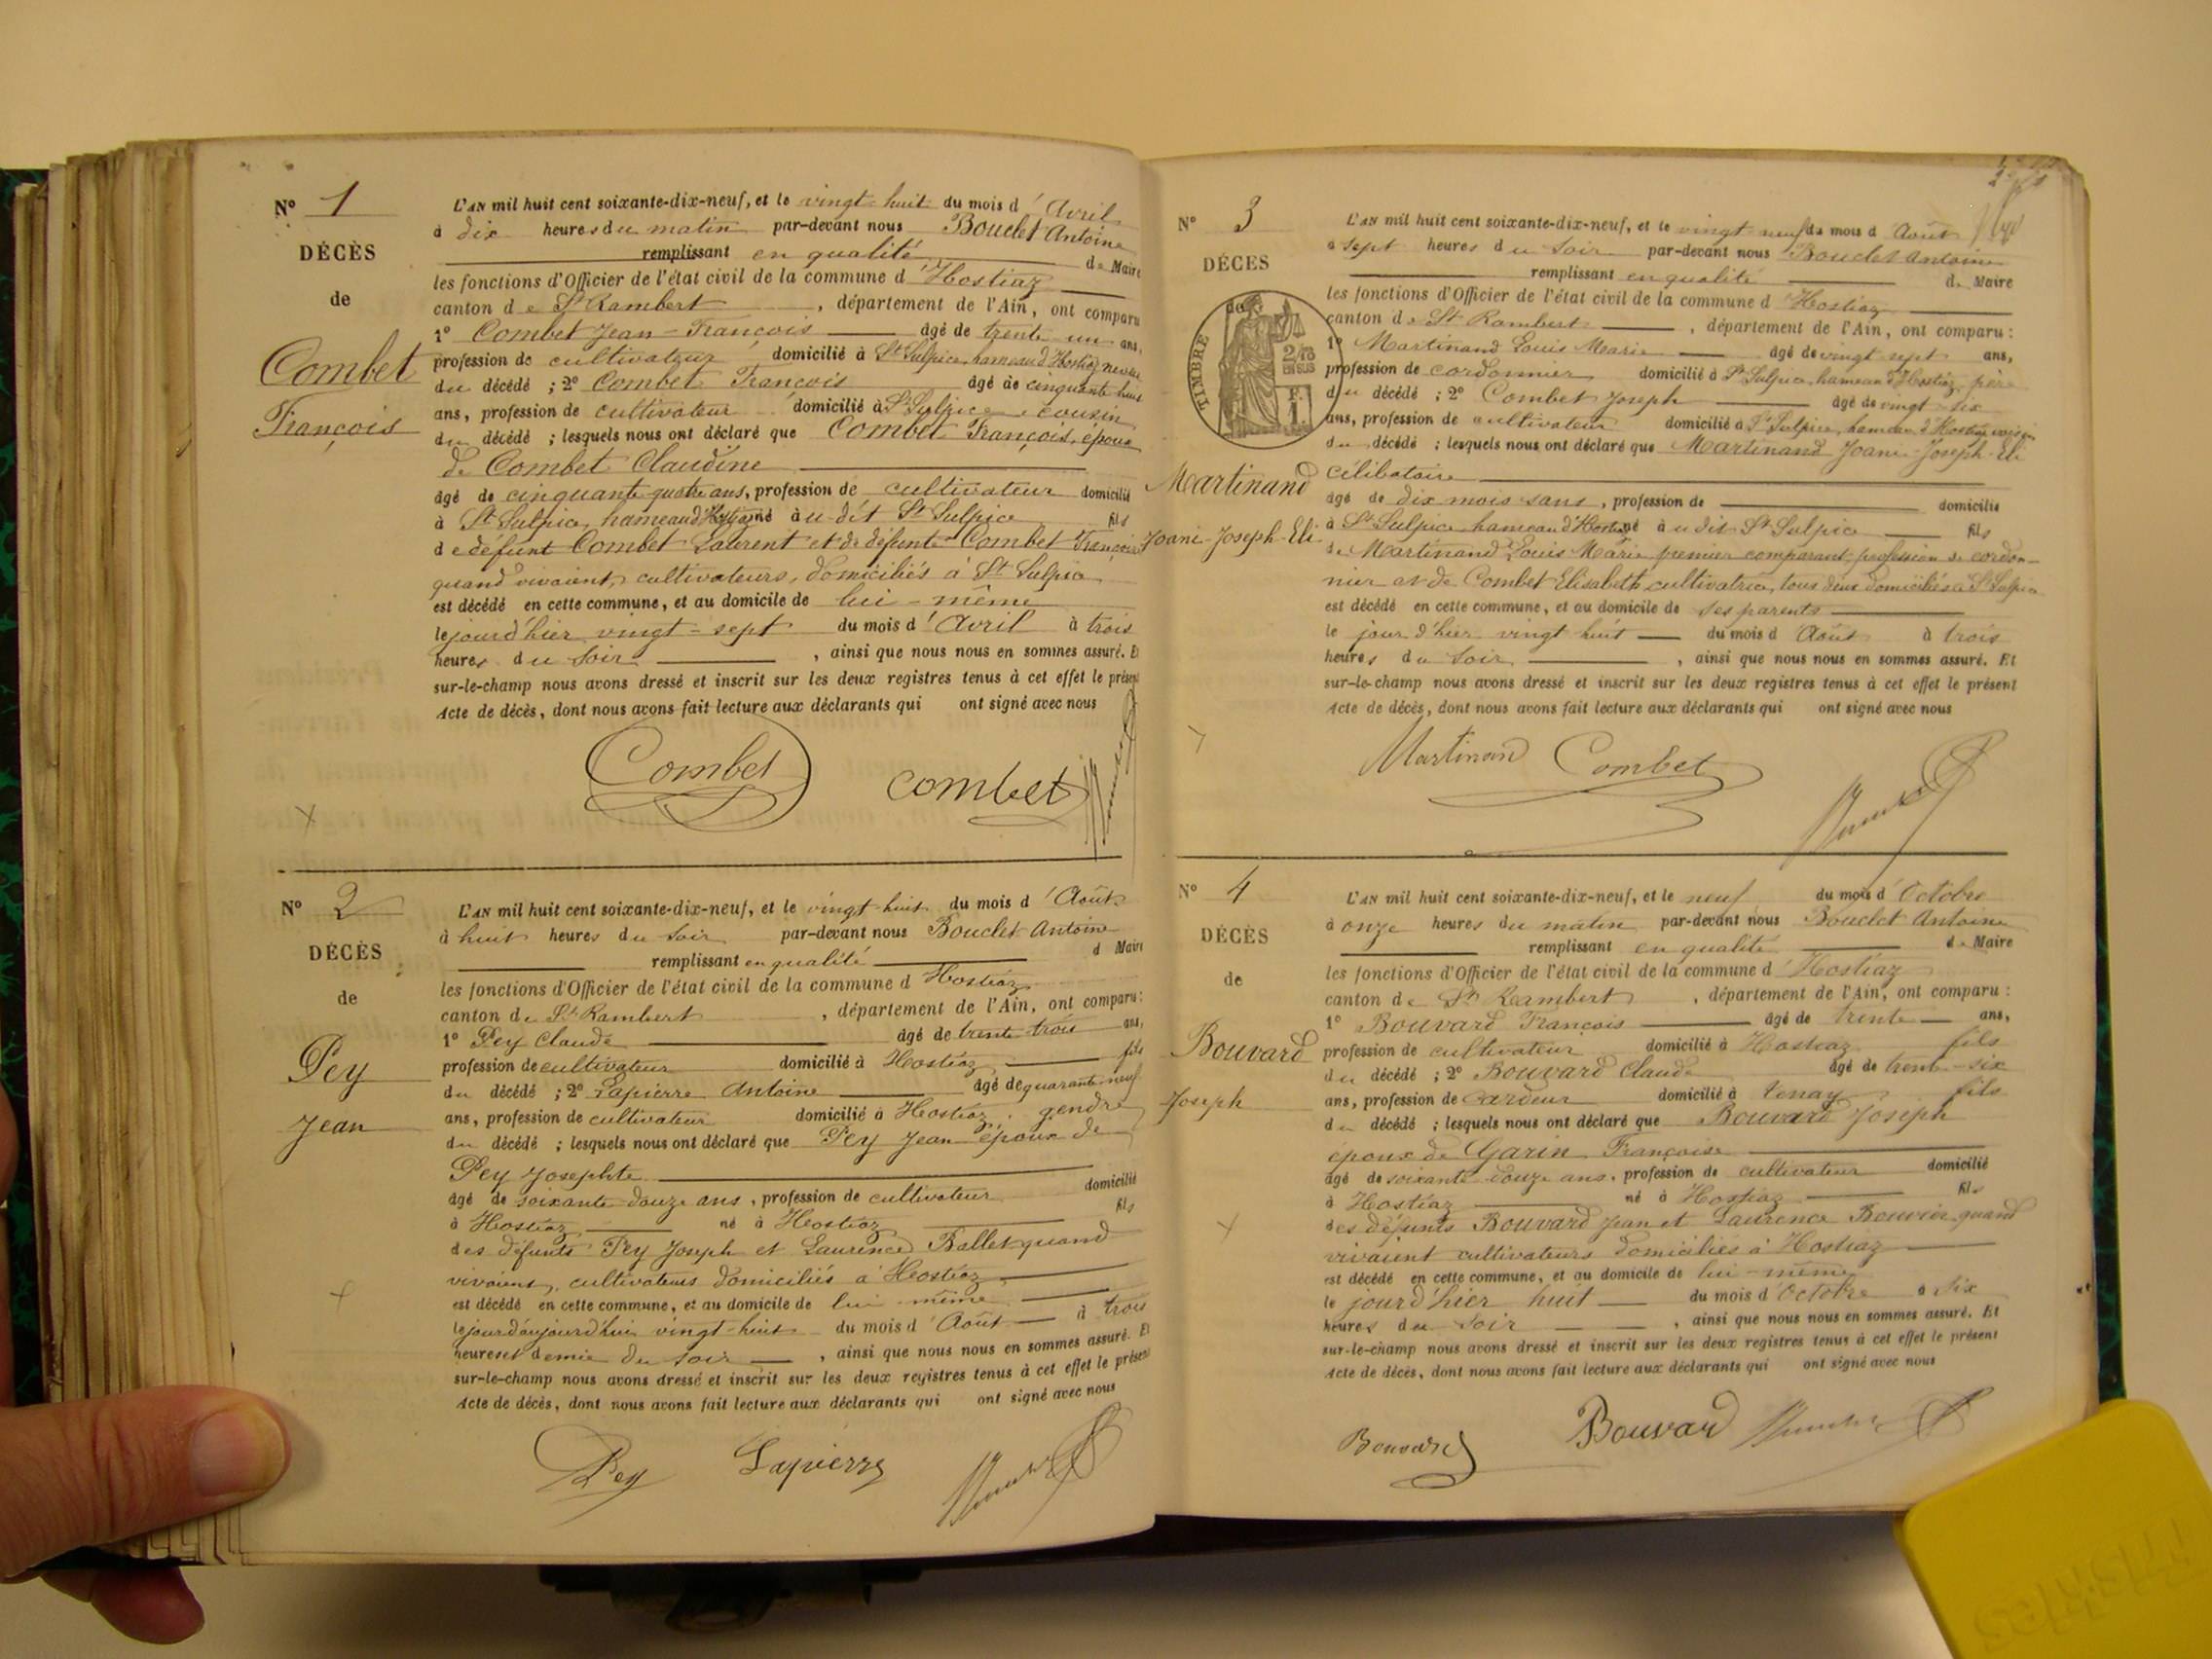 N° 1
DÉCÈS
de
Combet
François
L'AN mil huit cent soixante-dix-neuf, et le vingt-huit du mois d'Avril
à dix heures du matin par-devant nous Bouclet Antoine
remplissant en qualité de Maire
les fonctions d'Officier de l'état civil de la commune d'Hostiaz
canton de St Rambert, département de l'Ain, ont comparu
1° Combet Jean-François âgé de trente un ans,
profession de cultivateur domicilié à St Sulpice, hameau d'Hostiaz neveu
du décédé ; 2° Combet François âgé de cinquante huit
ans, profession de cultivateur domicilié à St Sulpice, cousin
du décédé ; lesquels nous ont déclaré que Combet François, époux
de Combet Claudine
âgé de cinquante quatre ans, profession de cultivateur domicilié
à St Sulpice, hameau d'Hostiaz né à u dit St Sulpice fils
de défunt Combet Laurent et de défunte Combet Françoise
quand vivaient, cultivateurs, domiciliés à St Sulpice
est décédé en cette commune, et au domicile de lui-même
le jour d'hier vingt-sept du mois d'Avril à trois
heures du soir, ainsi que nous nous en sommes assuré. Et
sur-le-champ nous avons dressé et inscrit sur les deux registres tenus à cet effet le présent
Acte de décès, dont nous avons fait lecture aux déclarants qui ont signé avec nous
Combet combet
N° 2
DÉCÈS
de
Pey
Jean
L'AN mil huit cent soixante-dix-neuf, et le vingt-huit du mois d'Août
à huit heures du soir par-devant nous Bouclet Antoine
remplissant en qualité d Maire
les fonctions d'Officier de l'état civil de la commune d Hostiaz
canton de St Rambert, département de l'Ain, ont comparu :
1° Pey Claude âgé de trente trois ans,
profession de cultivateur domicilié à Hostiaz fils
du décédé ; 2° Lapierre Antoine âgé de quarante neuf
ans, profession de cultivateur domicilié à Hostiaz, gendre
du décédé ; lesquels nous ont déclaré que Pey Jean époux de
Pey Josephte
âgé de soixante-douze ans, profession de cultivateur domicilié
à Hostiaz né à Hostiaz fils
des défunts Pey Joseph et Laurence Ballet quand
vivaient, cultivateurs domiciliés à Hostiaz
est décédé en cette commune, et au domicile de lui-même
le jour d'aujourd'hui vingt-huit du mois d'Août à trois
heures et demie du soir, ainsi que nous nous en sommes assuré. Et
sur-le-champ nous avons dressé et inscrit sur les deux registres tenus à cet effet le présent
Acte de décès, dont nous avons fait lecture aux déclarants qui ont signé avec nous
Pey Lapierre
N° 3
DÉCÈS
de
TIMBRE
2/10
EN SUS
F.
1.
Martinand
Joani-Joseph-Eli
L'AN mil huit cent soixante-dix-neuf, et le vingt neuf du mois d'Août
à sept heures du soir par-devant nous Bouclet Antoine
remplissant en qualité de Maire
les fonctions d'Officier de l'état civil de la commune d'Hostiaz
canton de St Rambert, département de l'Ain, ont comparu :
1° Martinand Louis Marie âgé de vingt sept ans,
profession de cordonnier domicilié à St Sulpice, hameau d'Hostiaz, père
du décédé ; 2° Combet Joseph âgé de vingt-six
ans, profession de cultivateur domicilié à St Sulpice, hameau d'Hostiaz voisin
du décédé ; lesquels nous ont déclaré que Martinand Joani-Joseph-Eli
célibataire
âgé de dix mois sans, profession de domicilié
à St Sulpice hameau d'Hostiaz né à u dit St Sulpice fils
de Martinand Louis Marie premier comparant, profession de cordon-
nier et de Combet Elisabeth cultivatrice, tous deux domiciliés à St Sulpice
est décédé en cette commune, et au domicile de ses parents
le jour d'hier vingt huit du mois d'Août à trois
heures du soir, ainsi que nous nous en sommes assuré. Et
sur-le-champ nous avons dressé et inscrit sur les deux registres tenus à cet effet le présent
Acte de décès, dont nous avons fait lecture aux déclarants qui ont signé avec nous
Martinand Combet
N° 4
DÉCÈS
de
Bouvard
Joseph
L'AN mil huit cent soixante-dix-neuf, et le neuf du mois d'Octobre
à onze heures du matin par-devant nous Bouclet Antoine
remplissant en qualité de Maire
les fonctions d'Officier de l'état civil de la commune d'Hostiaz
canton de St Rambert, département de l'Ain, ont comparu :
1° Bouvard François âgé de trente ans,
profession de cultivateur domicilié à Hostiaz fils
du décédé ; 2° Bouvard Claude âgé de trente-six
ans, profession de cardeur domicilié à tenay fils
du décédé ; lesquels nous ont déclaré que Bouvard Joseph
époux de Garin Françoise
âgé de soixante douze ans, profession de cultivateur domicilié
à Hostiaz né à Hostiaz fils
des défunts Bouvard Jean et Laurence Bouvier quand
vivaient cultivateurs domiciliés à Hostiaz
est décédé en cette commune, et au domicile de lui-même
le jour d'hier huit du mois d'Octobre à six
heures du soir, ainsi que nous nous en sommes assuré. Et
sur-le-champ nous avons dressé et inscrit sur les deux registres tenus à cet effet le présent
Acte de décès, dont nous avons fait lecture aux déclarants qui ont signé avec nous
Bouvard Bouvard